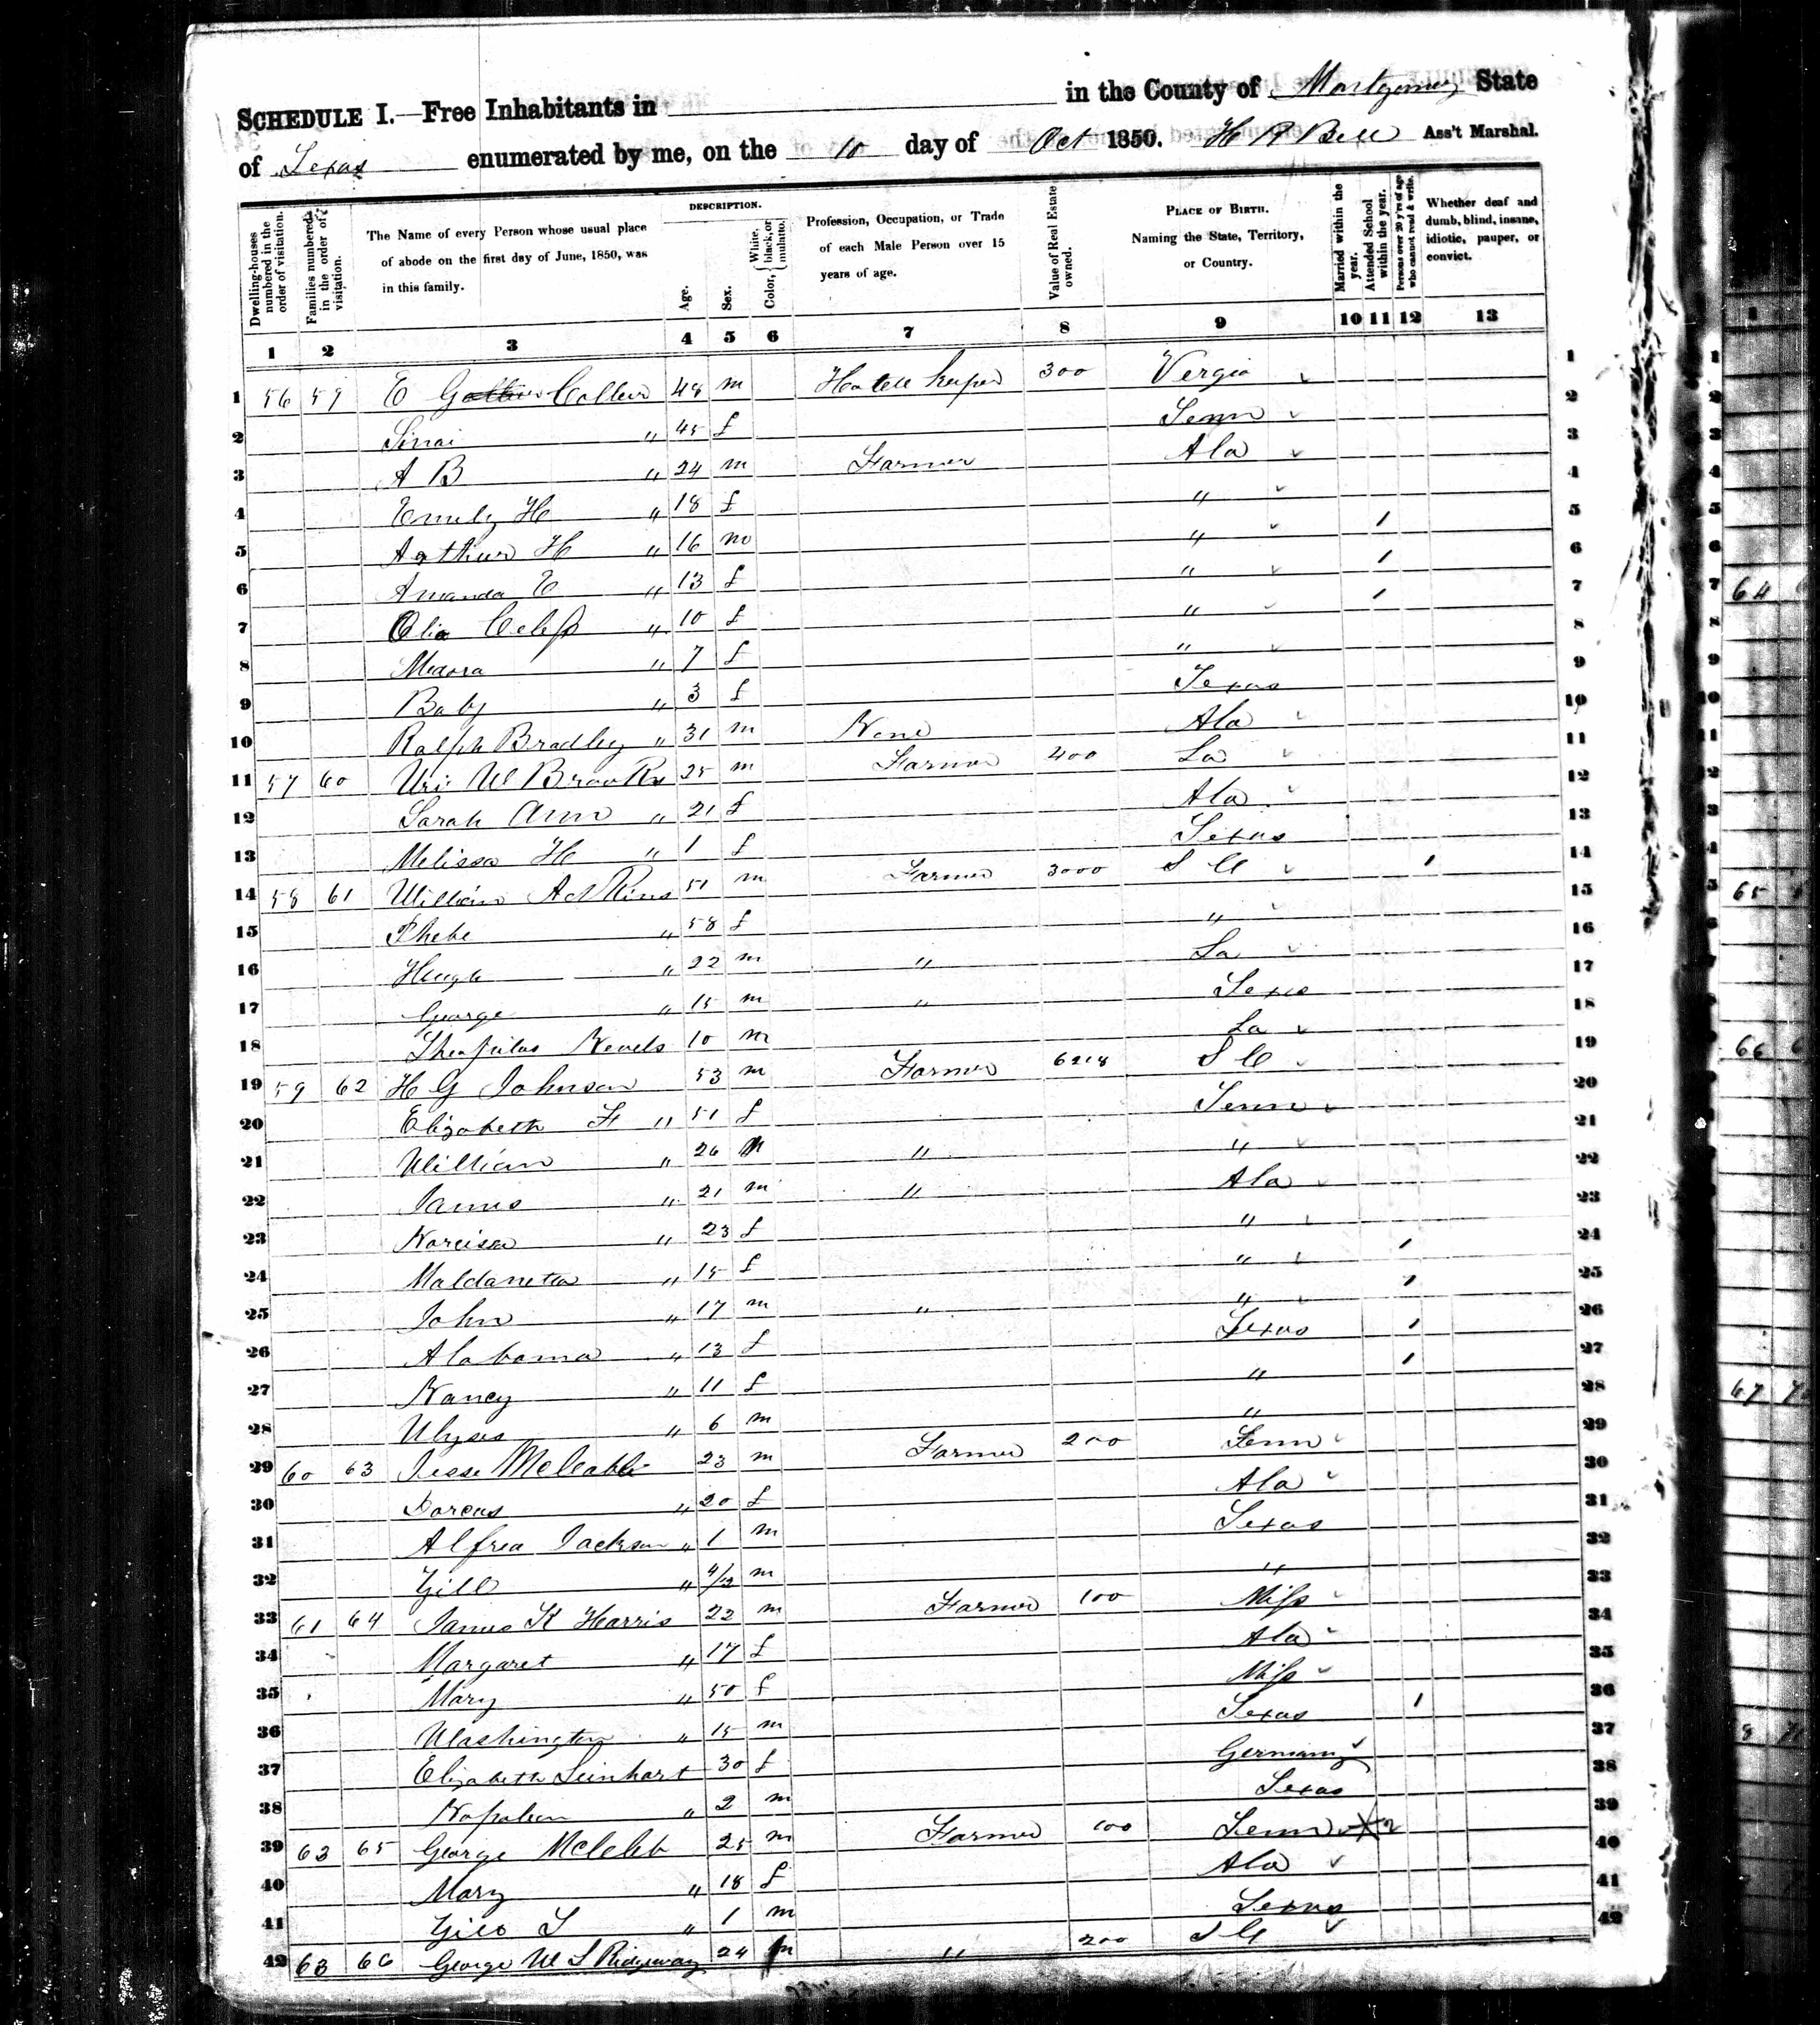 SCHEDULE I.—Free Inhabitants in in the County of Montgomery State
of Texas enumerated by me, on the 10 day of Oct 1850. H R Bell Ass't Marshal.
Dwelling-houses numbered in the order of visitation.
Families numbered in the order of visitation.
The Name of every Person whose usual place of abode on the first day of June, 1850, was in this family.
DESCRIPTION.
Age.
Sex.
Color, { White, black, or mulatto.
Profession, Occupation, or Trade of each Male Person over 15 years of age.
Value of Real Estate owned.
PLACE OF BIRTH. Naming the State, Territory, or Country.
Married within the year.
Attended School within the year.
Persons over 20 y'rs of age who cannot read & write.
Whether deaf and dumb, blind, insane, idiotic, pauper, or convict.
1 2 3 4 5 6 7 8 9 10 11 12 13
1 56 59 E Collier 48 m Hotell keeper 300 Vergia 1
2 Sinai " 45 f Tenn 2
3 A B " 24 m Farmer Ala 3
4 Emily H " 18 f " 4
5 Arthur H " 16 m " / 5
6 Amanda E " 13 f " / 6
7 " 10 f " / 7
8 Medora " 7 f " 8
9 Baby " 3 f Texas 9
10 Ralph Bradley " 31 m None Ala 10
11 57 60 Uri W Brooks 25 m Farmer 400 La 11
12 Sarah Ann " 21 f Ala 12
13 Melissa H " 1 f Texas 13
14 58 61 William Adkins 51 m Farmer 3000 S C / 14
15 Phebe " 58 f " 15
16 Hugh " 22 m " La 16
17 George " 15 m " Texas 17
18 Theopilas 10 m La 18
19 59 62 H G Johnson 53 m Farmer S C 19
20 Elizabeth F " 51 f Tenn 20
21 William " 26 m " " 21
22 James " 21 m " Ala 22
23 Narcissa " 23 f " 23
24 " 15 f " / 24
25 John " 17 m " " / 25
26 Alabama " 13 f Texas / 26
27 Nancy " 11 f " / 27
28 Ulyses " 6 m " 28
29 60 63 Jesse 23 m Farmer 200 Tenn 29
30 Dorcas " 20 f Ala 30
31 Alfred Jackson " 1 m Texas 31
32 " 4/12 m " 32
33 61 64 James K Harris 22 m Farmer 100 Miss 33
34 Margaret " 17 f Ala 34
35 Mary " 50 f Miss 35
36 Washington " 15 m Texas / 36
37 Elizabeth Leinhart 30 f Germany 37
38 Napoleon " 2 m Texas 38
39 62 65 George McCaleb 25 m Farmer 100 Tenn 39
40 Mary " 18 f Ala 40
41 " 1 m Texas 41
42 63 66 George W S Ridgeway 24 m " 200 S C 42
64
65
66
67